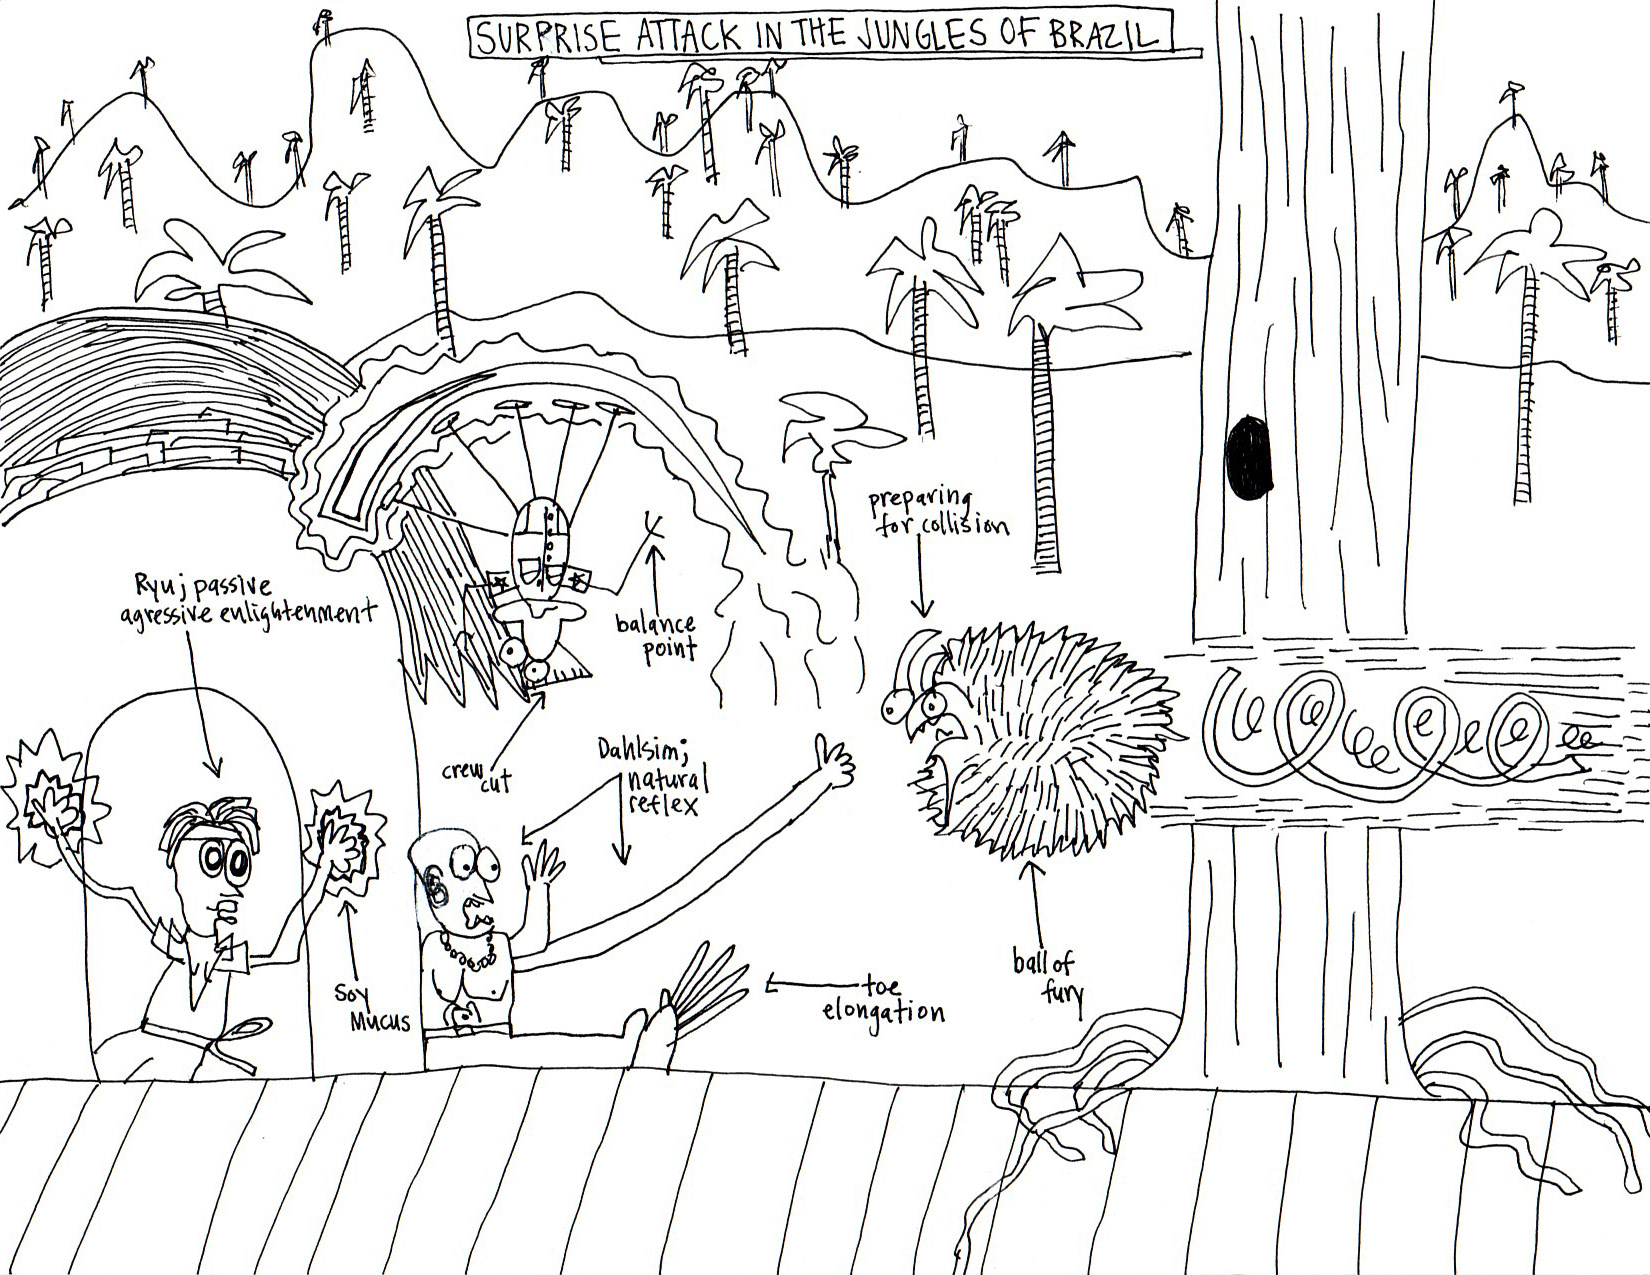 SURPRISE ATTACK IN THE JUNGLES OF BRAZIL
preparing
for collision
Ryu; passive
agressive enlightenment
balance
point
crew
cut
Dahlsim;
natural
reflex
Soy
Mucus
toe
elongation
ball of
fury